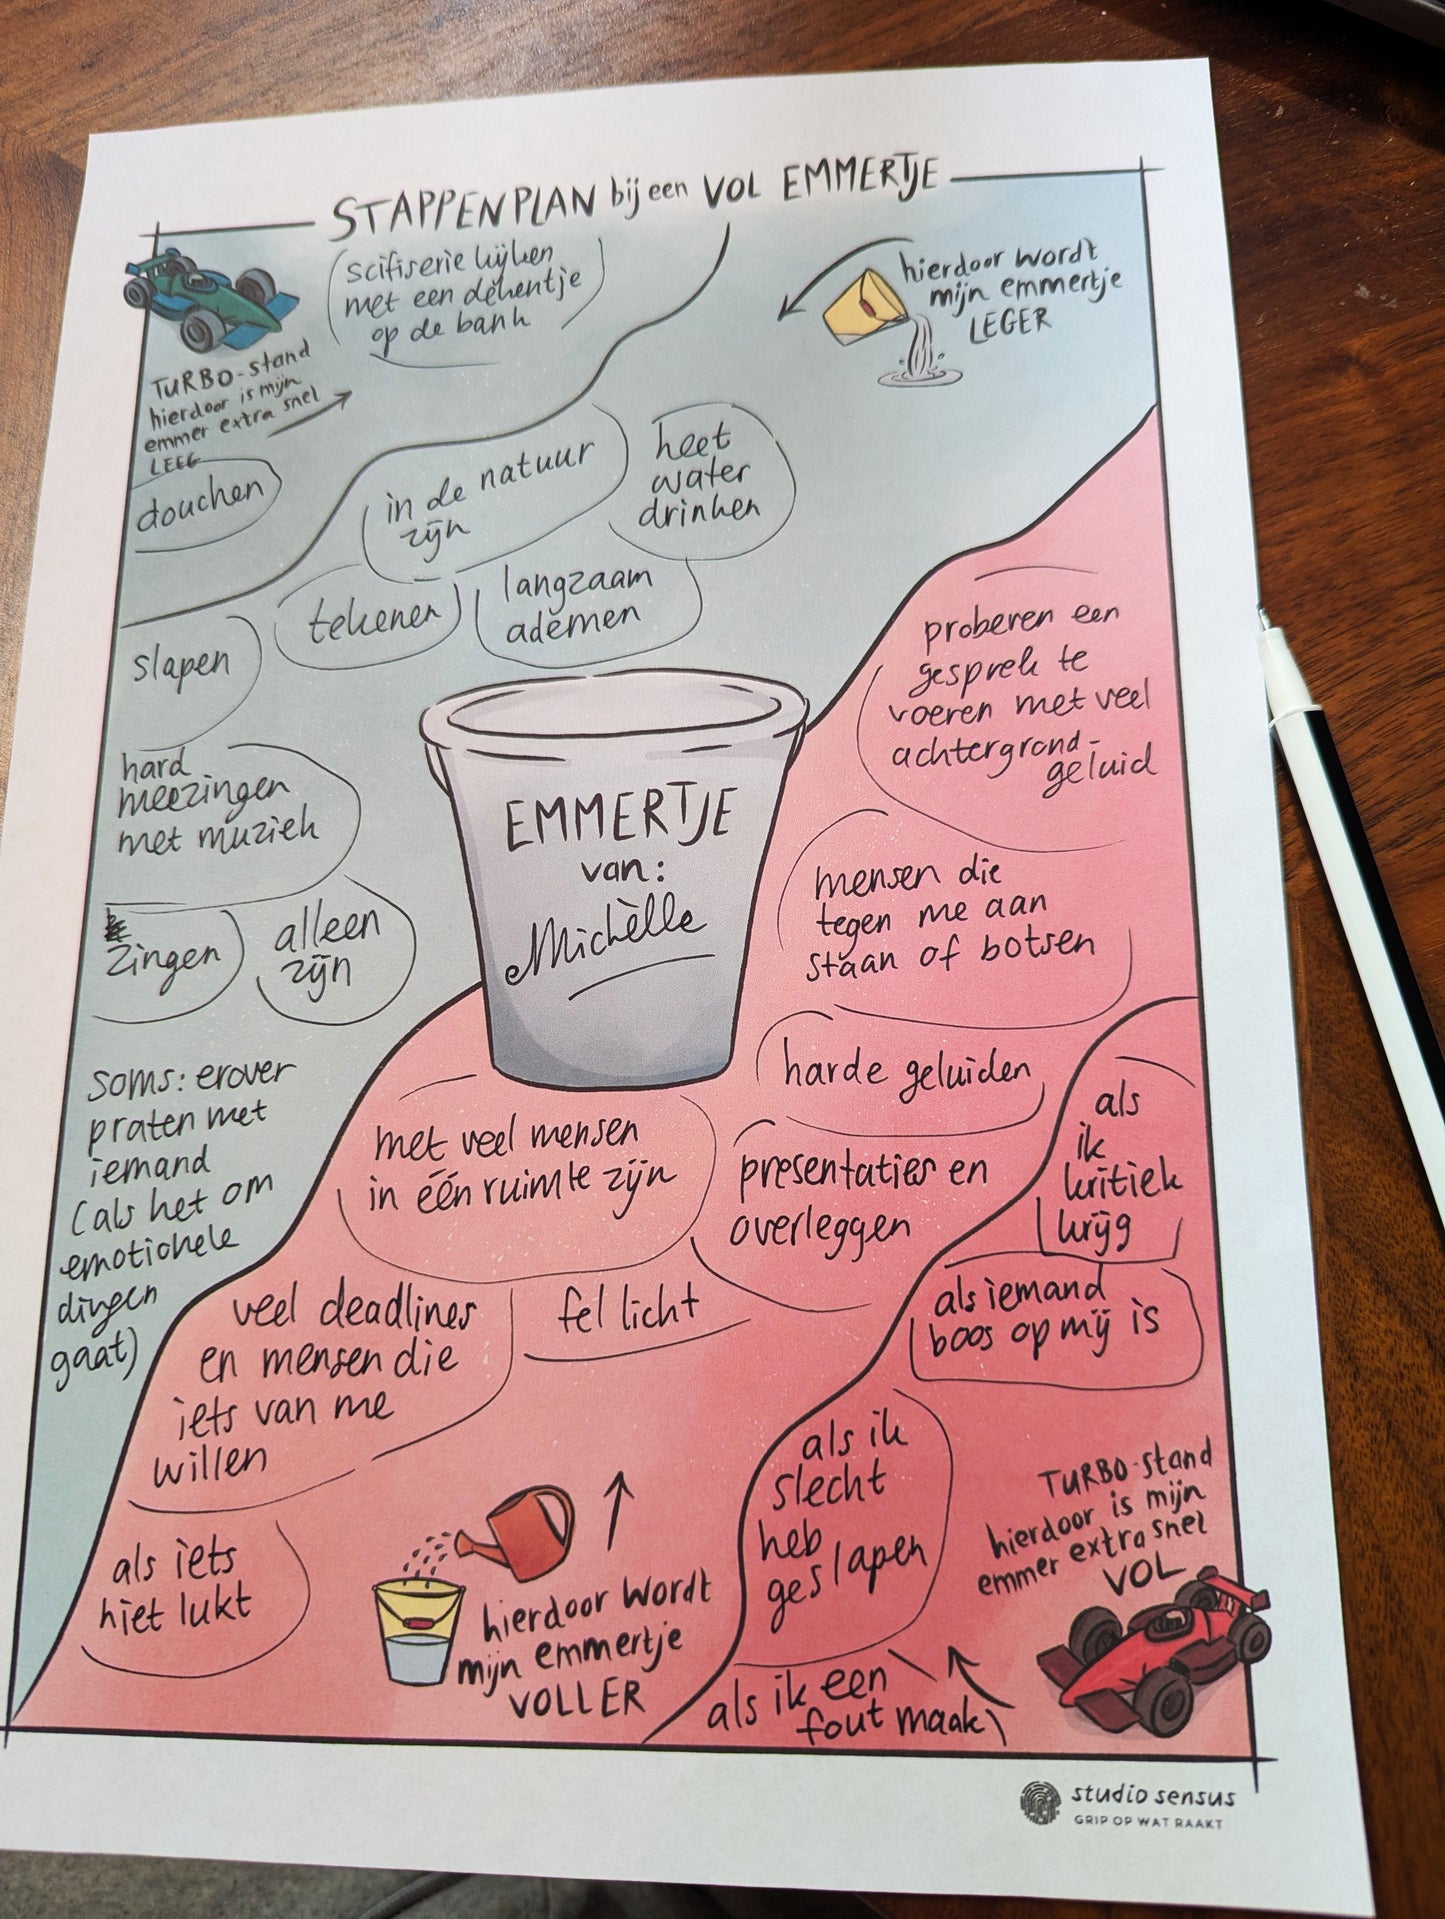 STAPPENPLAN bij een VOL EMMERTJE
scifiserie kijken
met een dekentje
op de bank
hierdoor wordt
mijn emmertje
LEGER
TURBO-stand
hierdoor is mijn
emmer extra snel
LEEG
douchen
in de natuur
zijn
heet
water
drinken
tekenen
langzaam
ademen
slapen
hard
meezingen
met muziek
zingen
alleen
zijn
soms: erover
praten met
iemand
(als het om
emotionele
dingen
gaat)
EMMERTJE
van:
Michèlle
proberen een
gesprek te
voeren met veel
achtergrond-
geluid
mensen die
tegen me aan
staan of botsen
harde geluiden
met veel mensen
in één ruimte zijn
presentaties en
overleggen
als
ik
kritiek
krijg
als iemand
boos op mij is
veel deadlines
en mensen die
iets van me
willen
fel licht
als iets
niet lukt
hierdoor wordt
mijn emmertje
VOLLER
als ik
slecht
heb
geslapen
als ik een
fout maak
TURBO-stand
hierdoor is mijn
emmer extra snel
VOL
studio sensus
GRIP OP WAT RAAKT